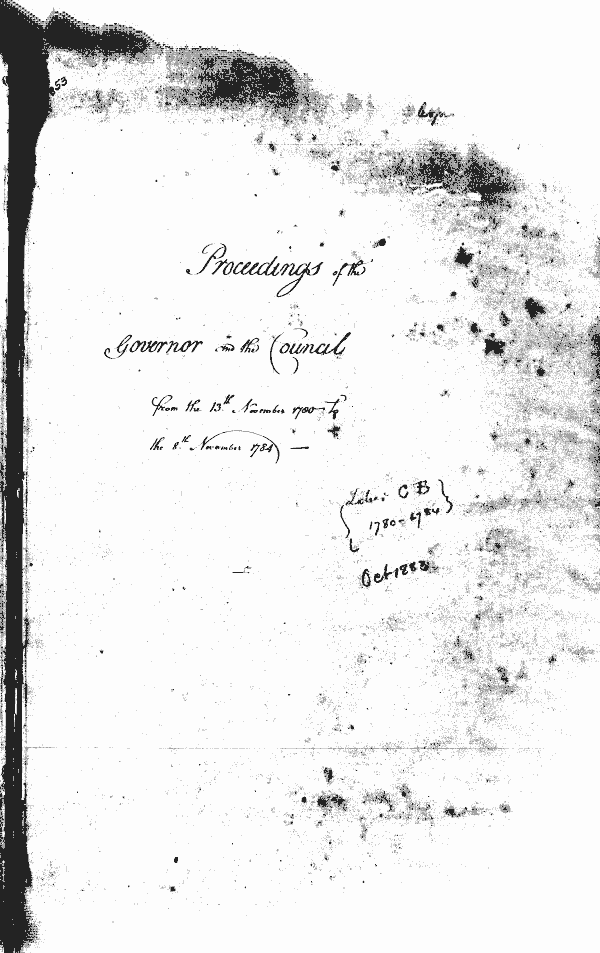 853
Copy
Proceedings of the
Governor and the Council
from the 13th November 1780 To
the 8th November 1784 —
C B
1780-1784
Oct 1883